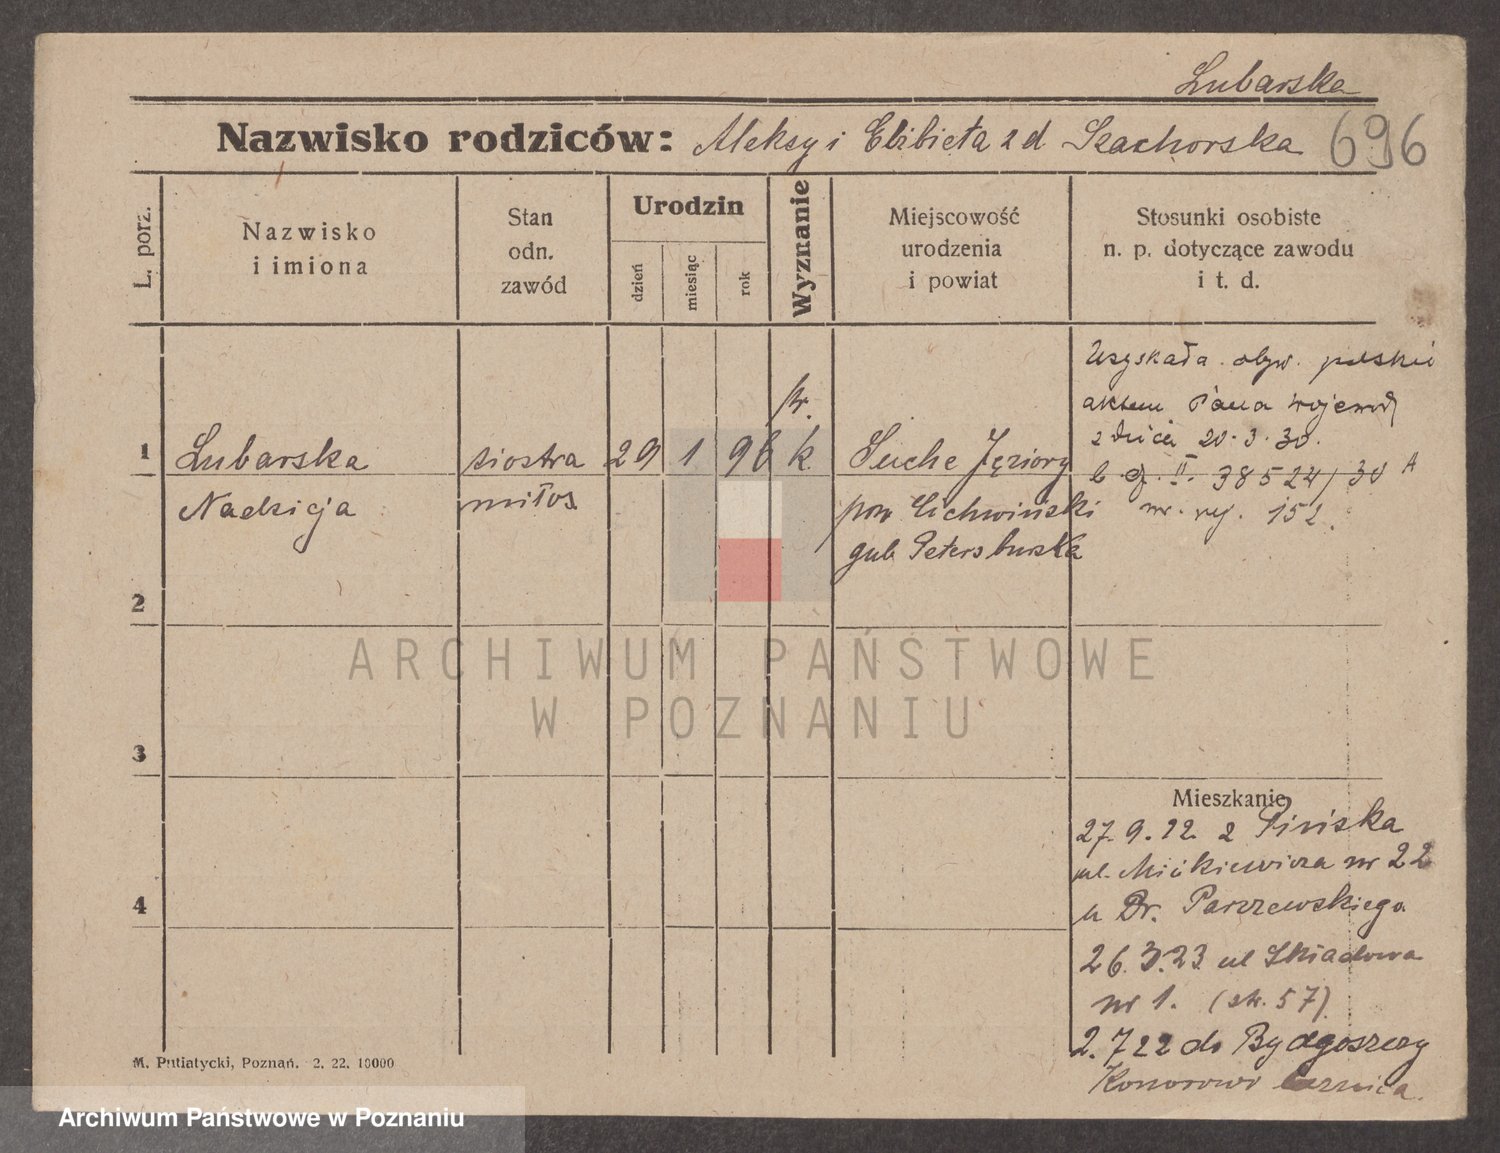 Lubarska
Nazwisko rodziców: Aleksy i Elżbieta z d Szachorska 696
L. porz.
Nazwisko
i imiona
Stan
odn.
zawód
Urodzin
dzień
miesiąc
rok
Wyznanie
Miejscowość
urodzenia
i powiat
Stosunki osobiste
n. p. dotyczące zawodu
i t. d.
Uzyskała obyw. polskie
aktem Pana Wojewody
z dnia 20.3.30.
II. 38524/30 A
nr. rej. 152.
1 Lubarska siostra 29 1 96 k. Suche Jęziory
Nadzieja miłos
pow
gub Petersburska
2
3
4
ARCHIWUM PAŃSTWOWE
W POZNANIU
Mieszkanie
27.9.22 z Pińska
ul. Mickiewicza nr 22
u Dr. Parczewskiego
26.3.23 ul Składowa
nr 1. (str. 57)
2.7 22 do Bydgoszczy
M. Putiatycki, Poznań. 2. 22. 10000
Archiwum Państwowe w Poznaniu